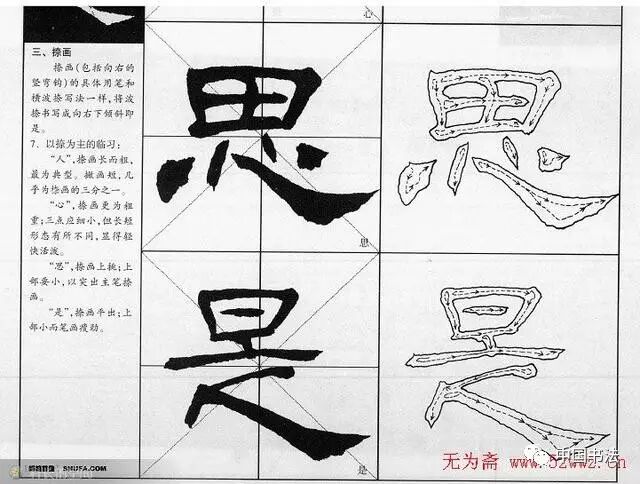 心
三、捺画
捺画(包括向右的
竖弯钩)的具体用笔和
横波捺写法一样,将波
捺书写成向右下倾斜即
是。
7、以捺为主的临习:
“人”,捺画长而粗,
最为典型。撇画短,几
乎为捺画的三分之一。
“心”,捺画更为粗
重;三点应细小,但长短
形态有所不同,显得轻
快活泼。
“思”,捺画上挑;上
部要小,以突出主笔捺
画。
“是”,捺画平出;上
部小而笔画瘦劲。
思
思
是
是
SHUFA.COM
无为斋 www.52wwz.cn
中国书法